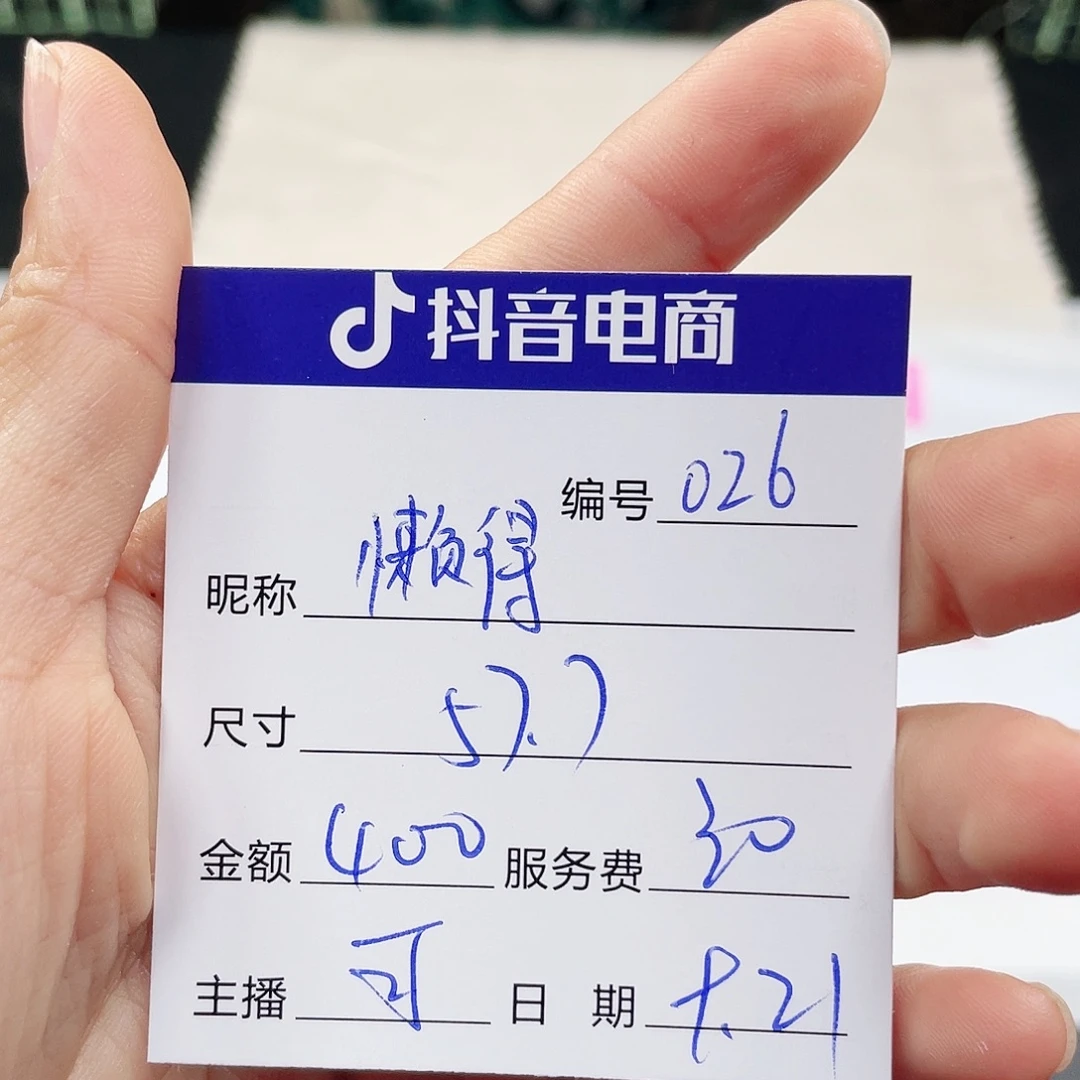 抖音电商
编号 026
昵称 懒得
尺寸 57.7
金额 400 服务费 30
主播 可
日期 8.21